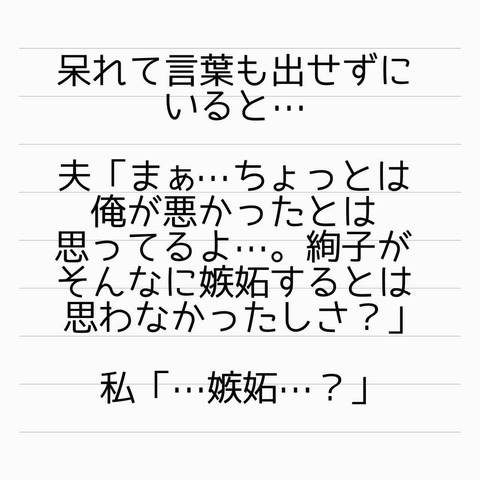 呆れて言葉も出せずに
いると…
夫「まぁ…ちょっとは
俺が悪かったとは
思ってるよ…。絢子が
そんなに嫉妬するとは
思わなかったしさ？」
私「…嫉妬…？」